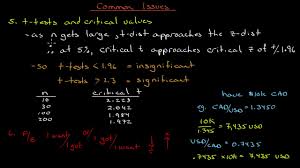 Common Issues
5. t-tests and critical values
- as n gets large, t-dist approaches the z-dist
∴ at 5%, critical t approaches critical z of +/- 1.96
- so t-tests < 1.96 = insignificant
t-tests > 2.3 = significant
n critical t
10 2.228
30 2.042
100 1.984
200 1.972
6. P/B I want / I got
have $10K CAD
eg. CAD/USD = 1.3450
10K/1.345 = 7,435 USD
USD/CAD = 0.7435
.7435 × 10K = 7,435 USD